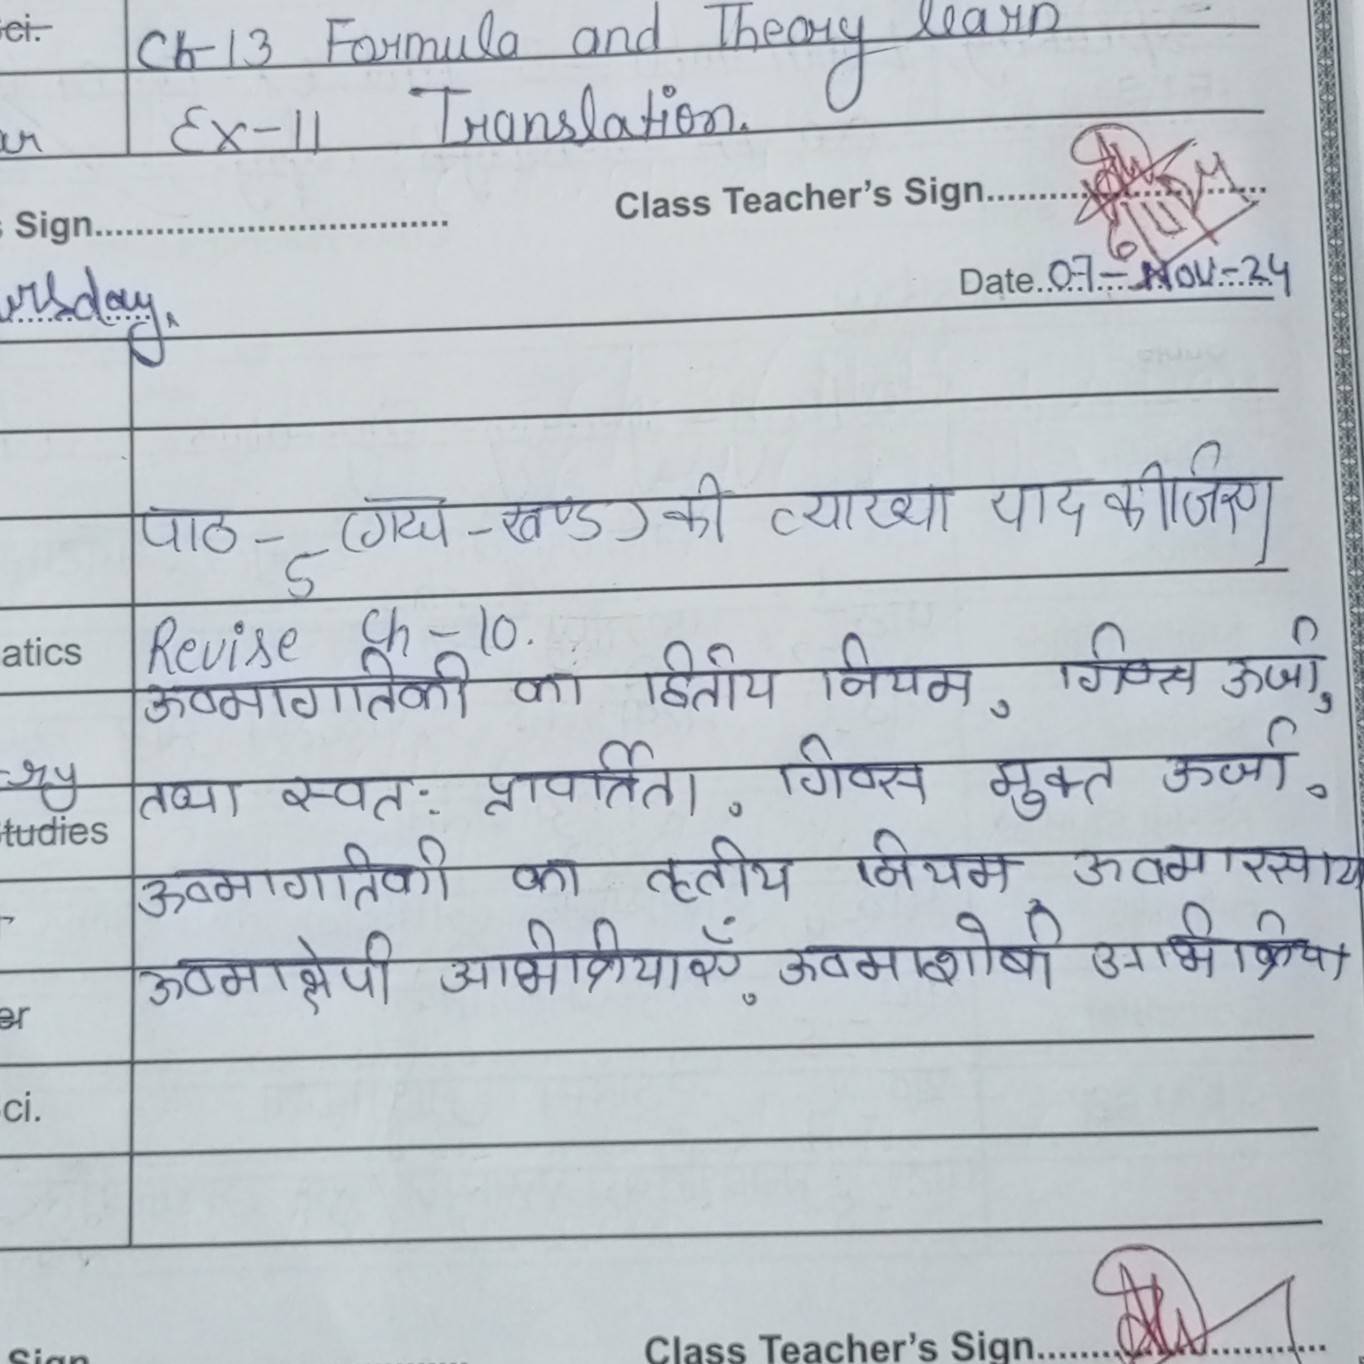 Ch-13 Formula and Theory learn
Ex-11 Translation.
Sign
Class Teacher's Sign
Date 07-Nov-24
पाठ-5 (गद्य-खण्ड) की व्याख्या याद कीजिए
atics Revise Ch-10.
ऊष्मागतिकी का द्वितीय नियम, गिब्स ऊर्जा,
तथा स्वतः प्रवर्तिता, गिब्स मुक्त ऊर्जा,
tudies
ऊष्मागतिकी का तृतीय नियम ऊष्मारसाय
ऊष्माक्षेपी अभिक्रियाएँ, ऊष्माशोषी अभिक्रिया
er
ci.
Sign
Class Teacher's Sign